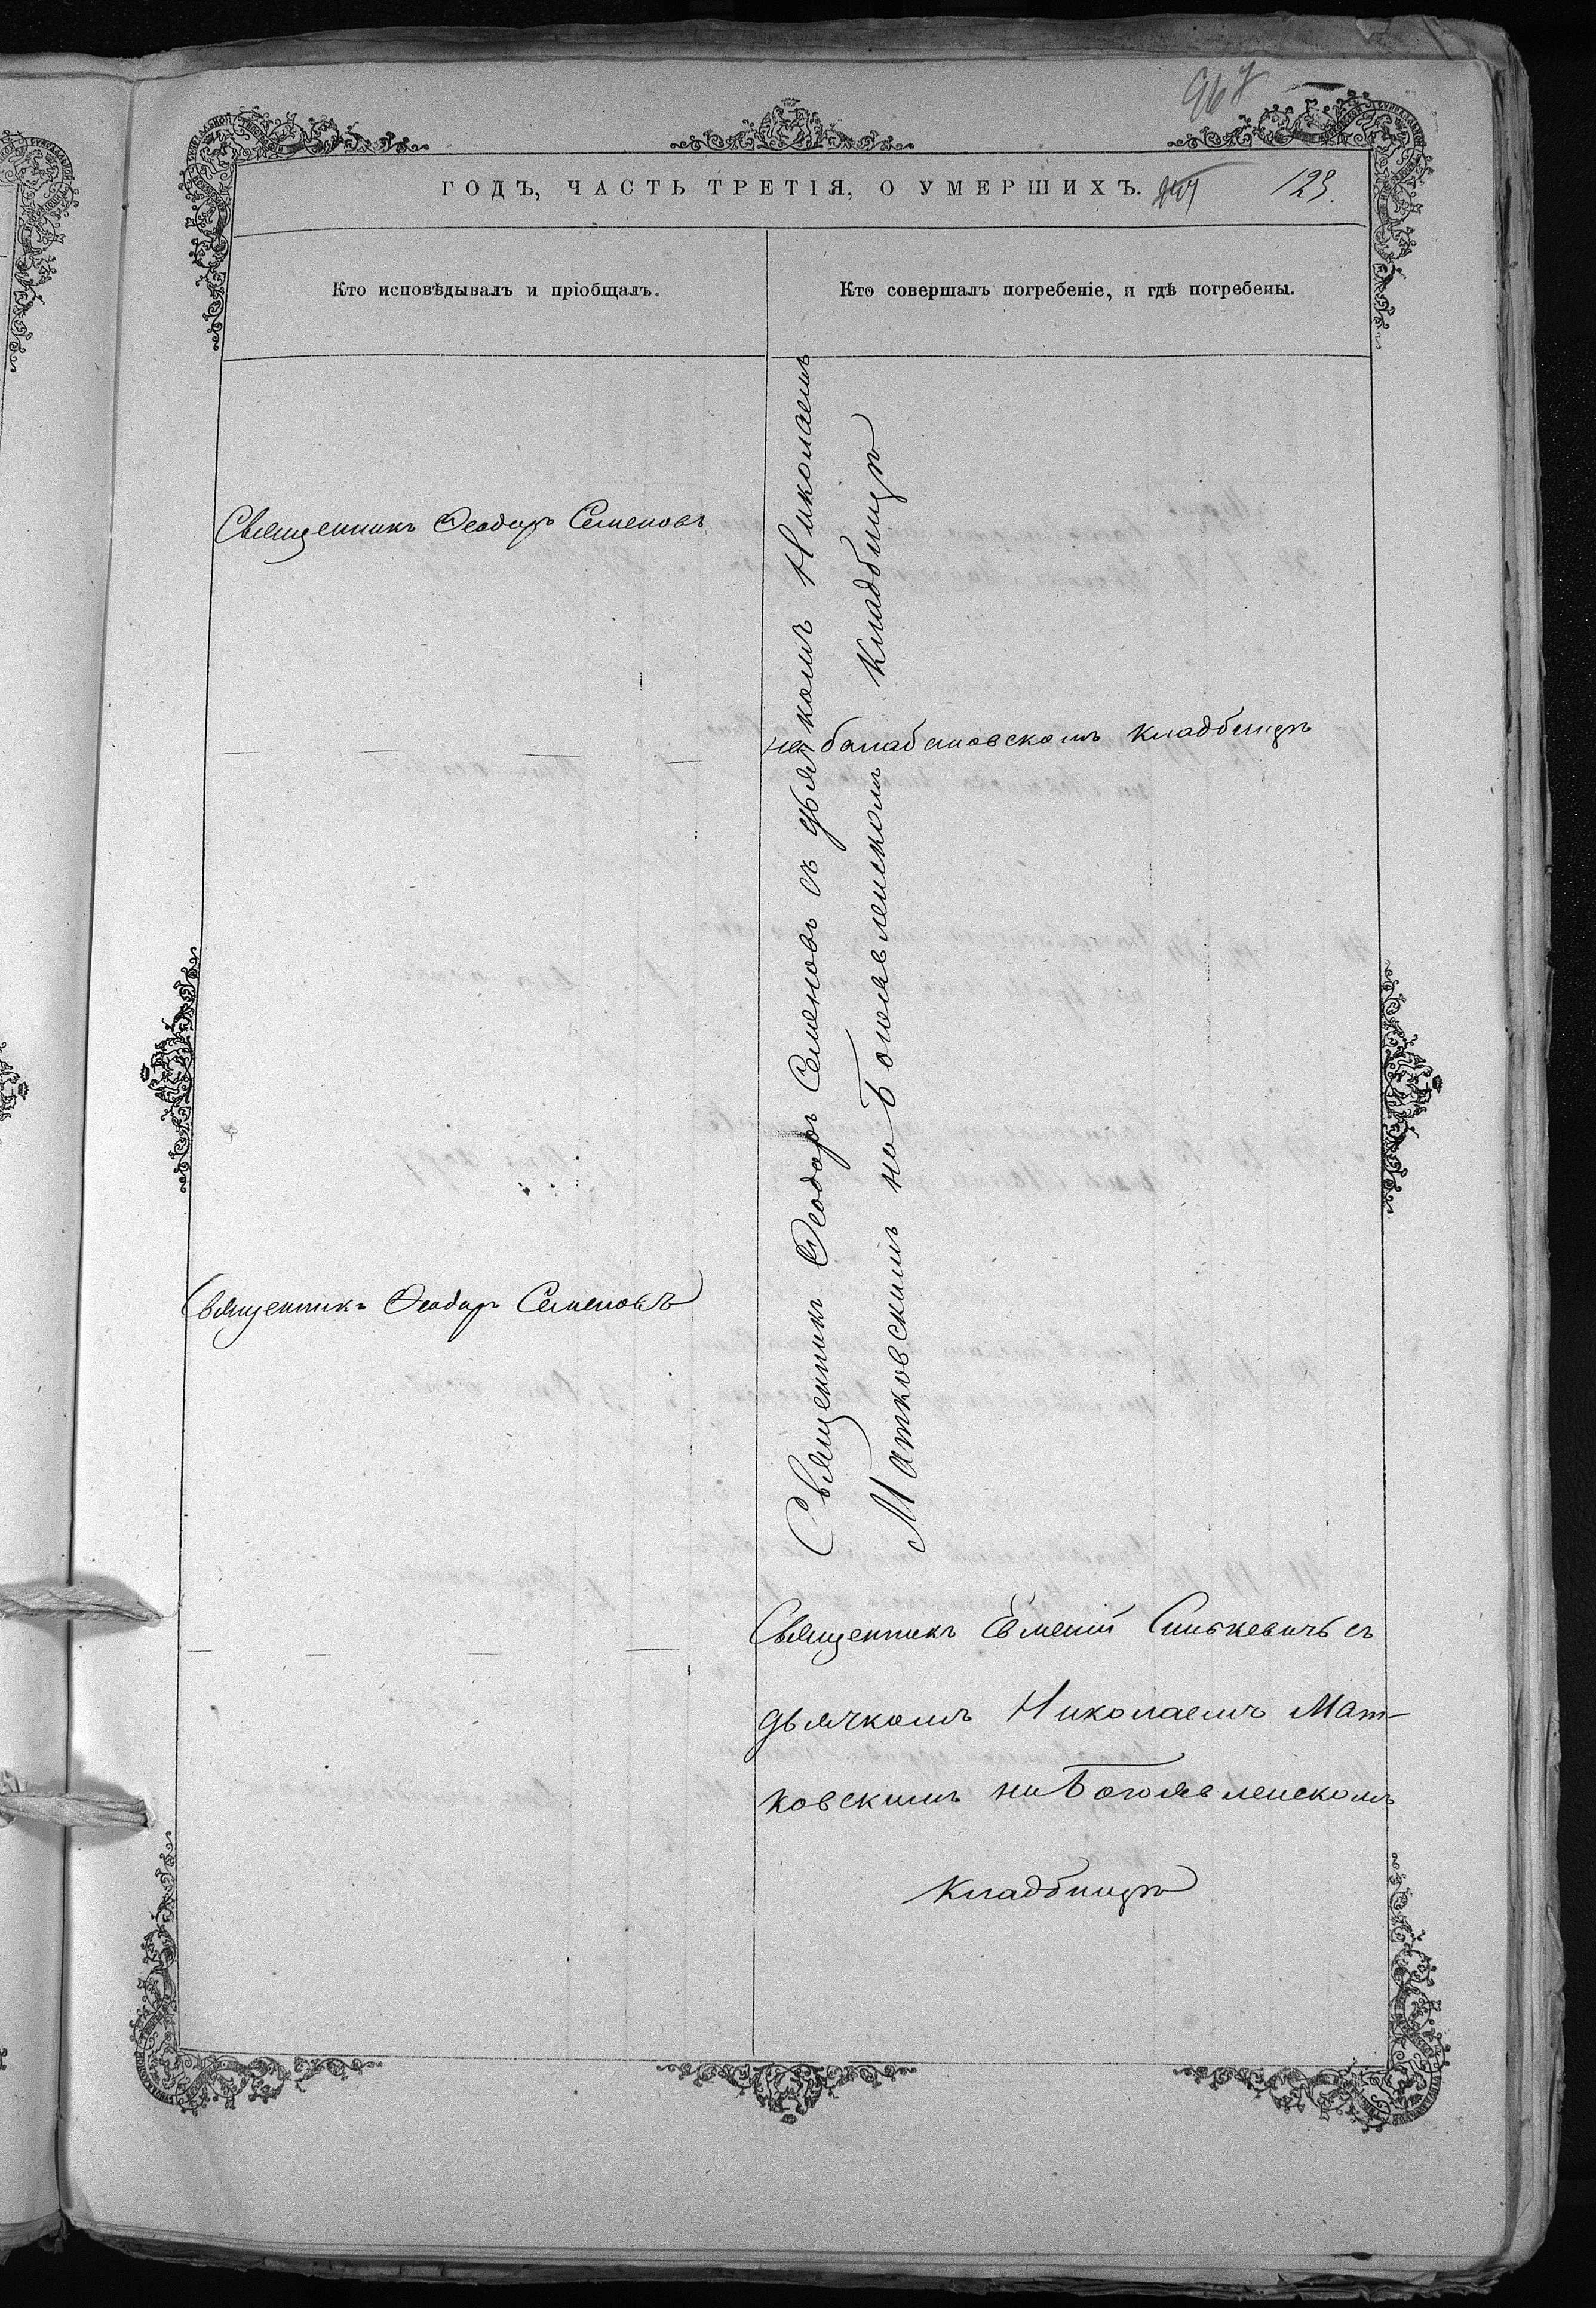 967
ГОДЪ, ЧАСТЬ ТРЕТІЯ, О УМЕРШИХЪ. 123.
Кто исповѣдывалъ и пріобщалъ.
Кто совершалъ погребеніе, и гдѣ погребены.
Священникъ Ѳеодоръ Семеновъ
Священникъ Ѳеодоръ Семеновъ съ дьячкомъ Николаемъ
Матковскимъ на Богоявленскомъ кладбищѣ
на балабановскомъ кладбищѣ
Священникъ Ѳеодоръ Семеновъ
Священникъ Евменій Синькевичъ съ
дьячкомъ Николаемъ Мат-
ковскимъ на Богоявленскомъ
кладбищѣ